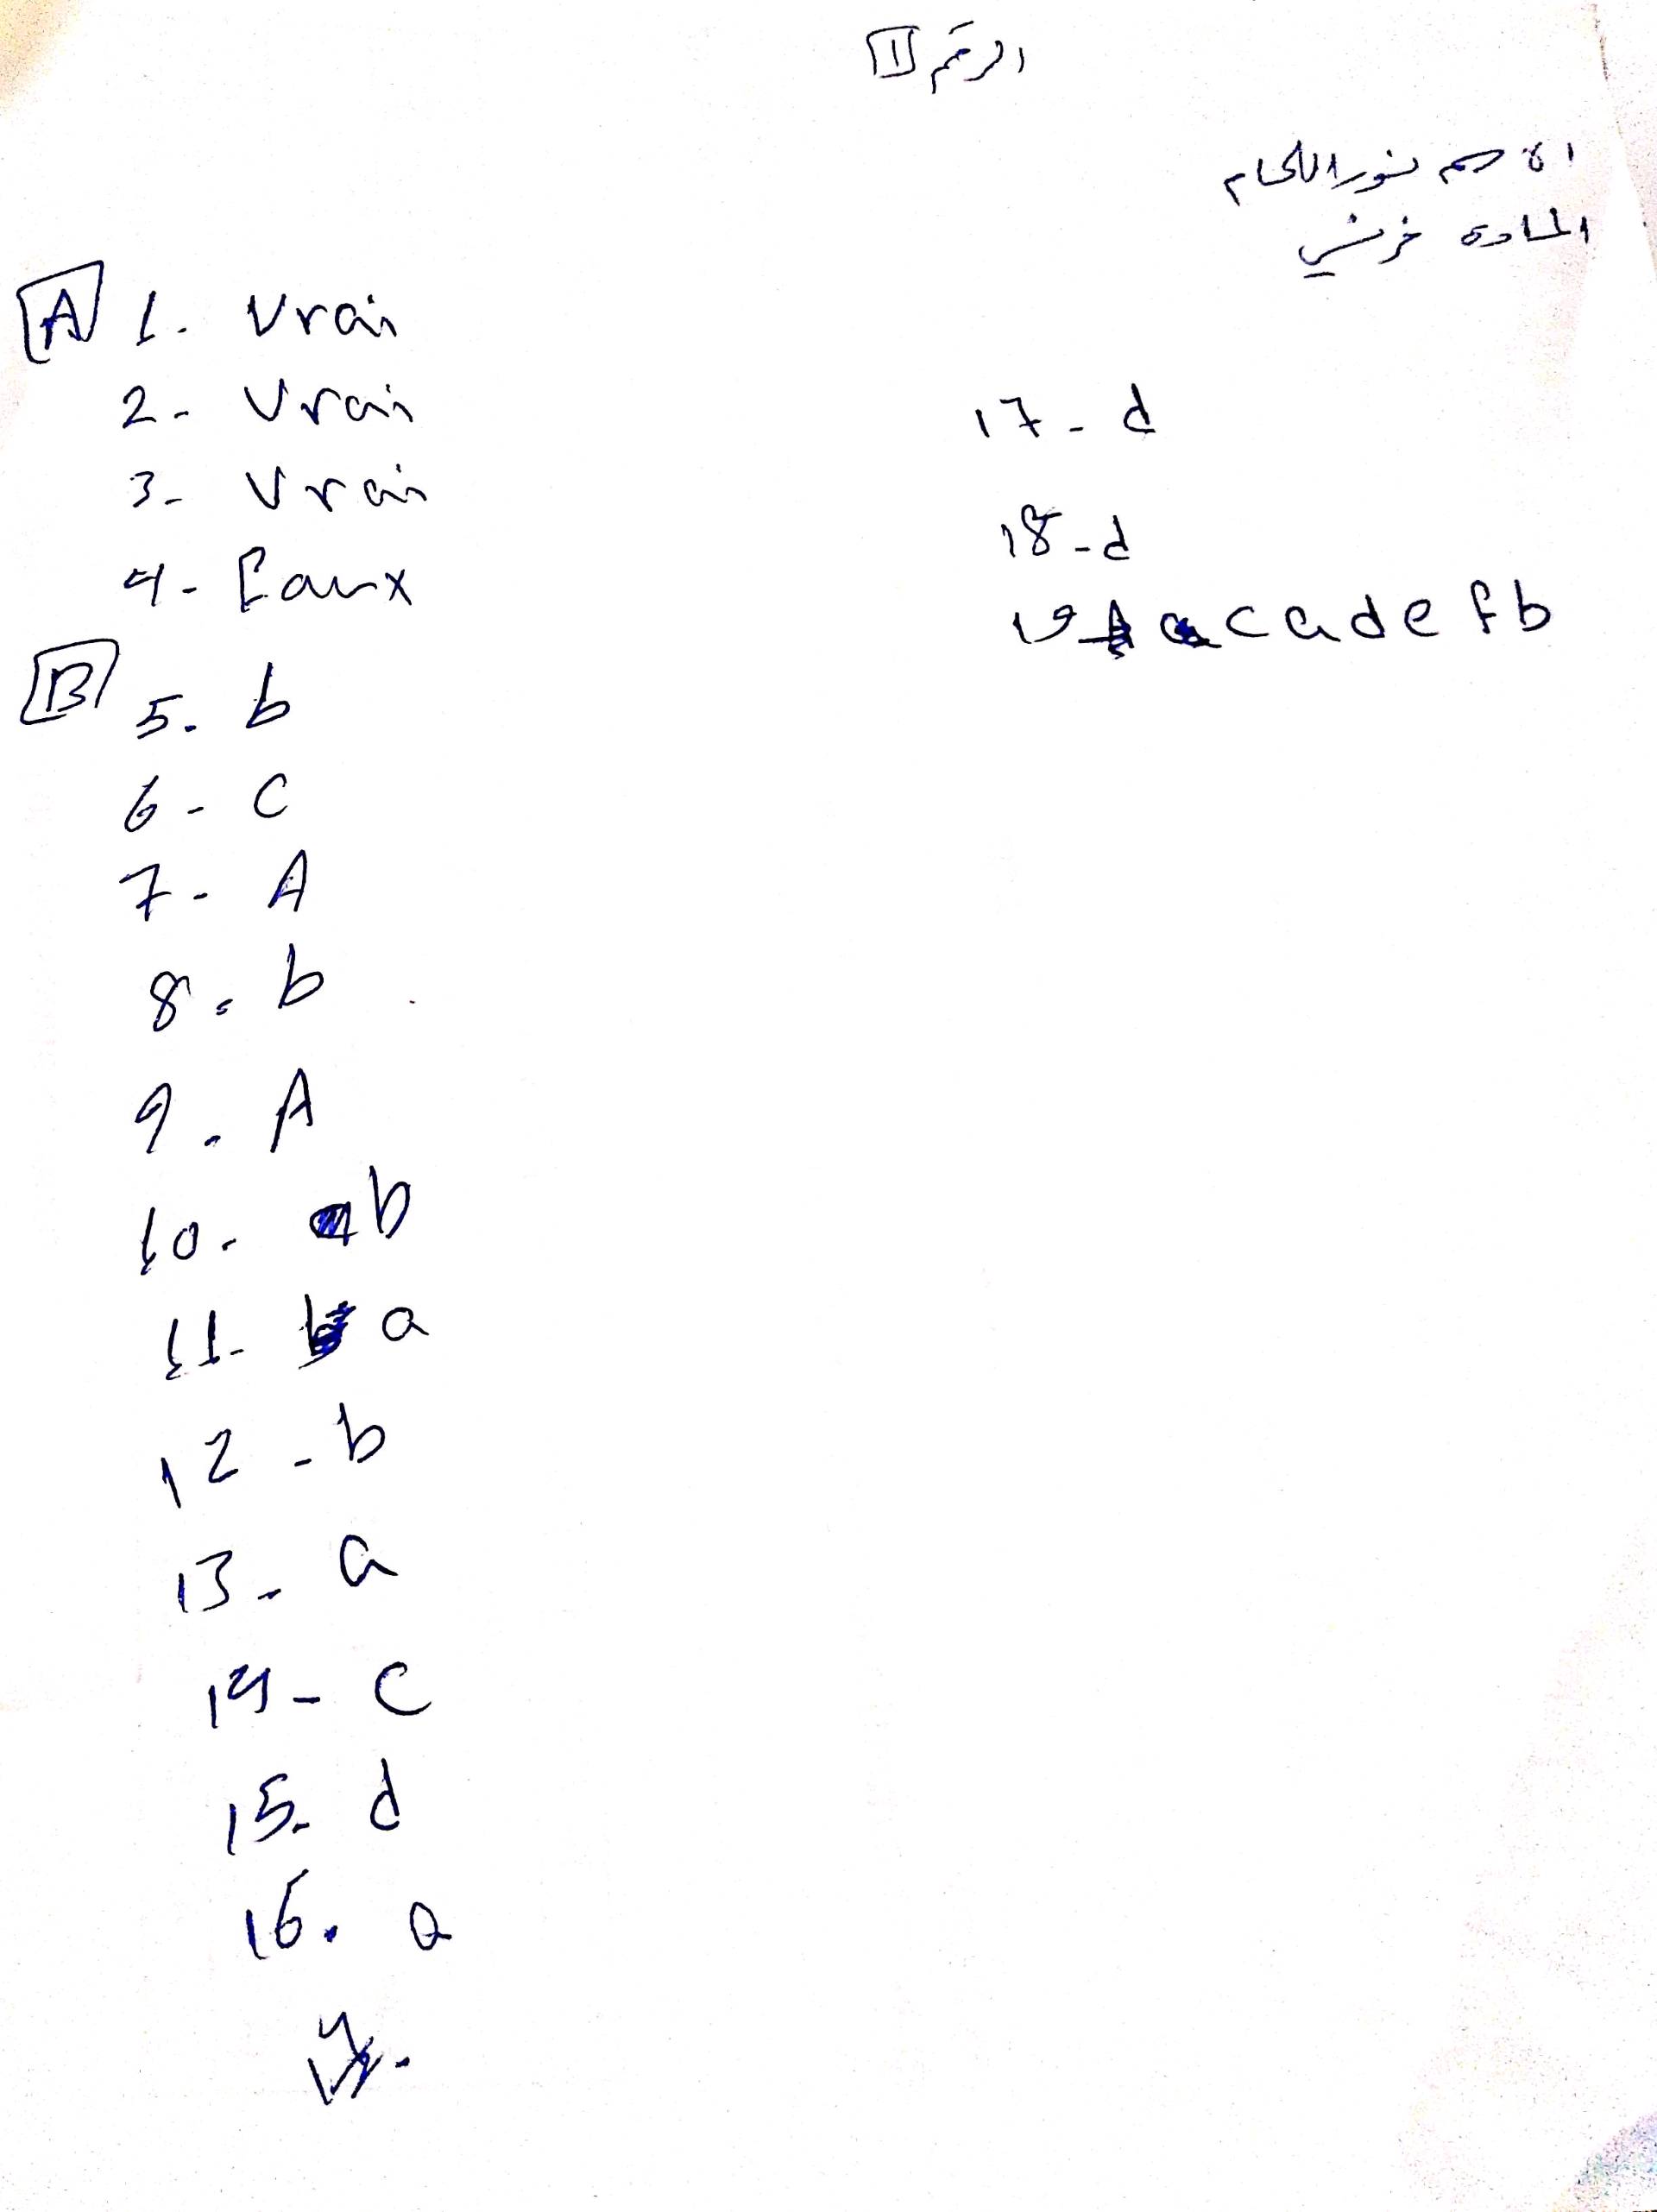 الرقم 1
الاسم نور اللحام
المادة فرنسي
A 1- Vrai
2- Vrai
3- Vrai
4- Faux
B 5- b
6- c
7- A
8- b
9- A
10- b
11- a
12- b
13- a
14- c
15- d
16- a
17- d
18- d
19- c a d e f b